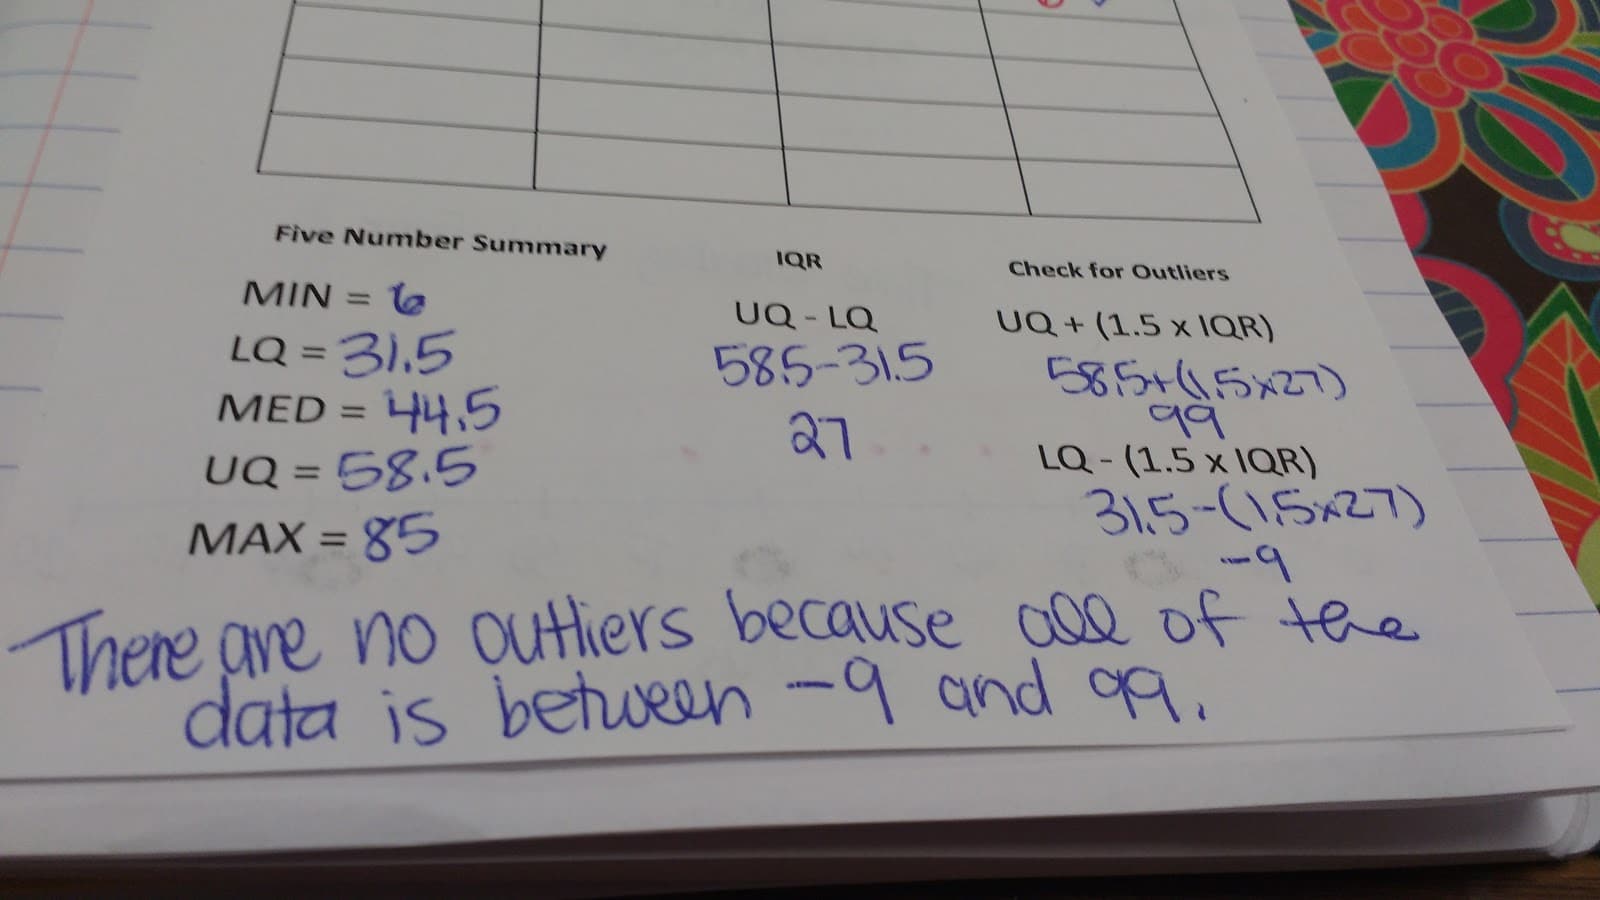 Five Number Summary
MIN = 6
LQ = 31.5
MED = 44.5
UQ = 58.5
MAX = 85
IQR
UQ - LQ
58.5-31.5
27
Check for Outliers
UQ + (1.5 x IQR)
58.5+(1.5x27)
99
LQ - (1.5 x IQR)
31.5-(1.5x27)
-9
There are no outliers because all of the
data is between -9 and 99.